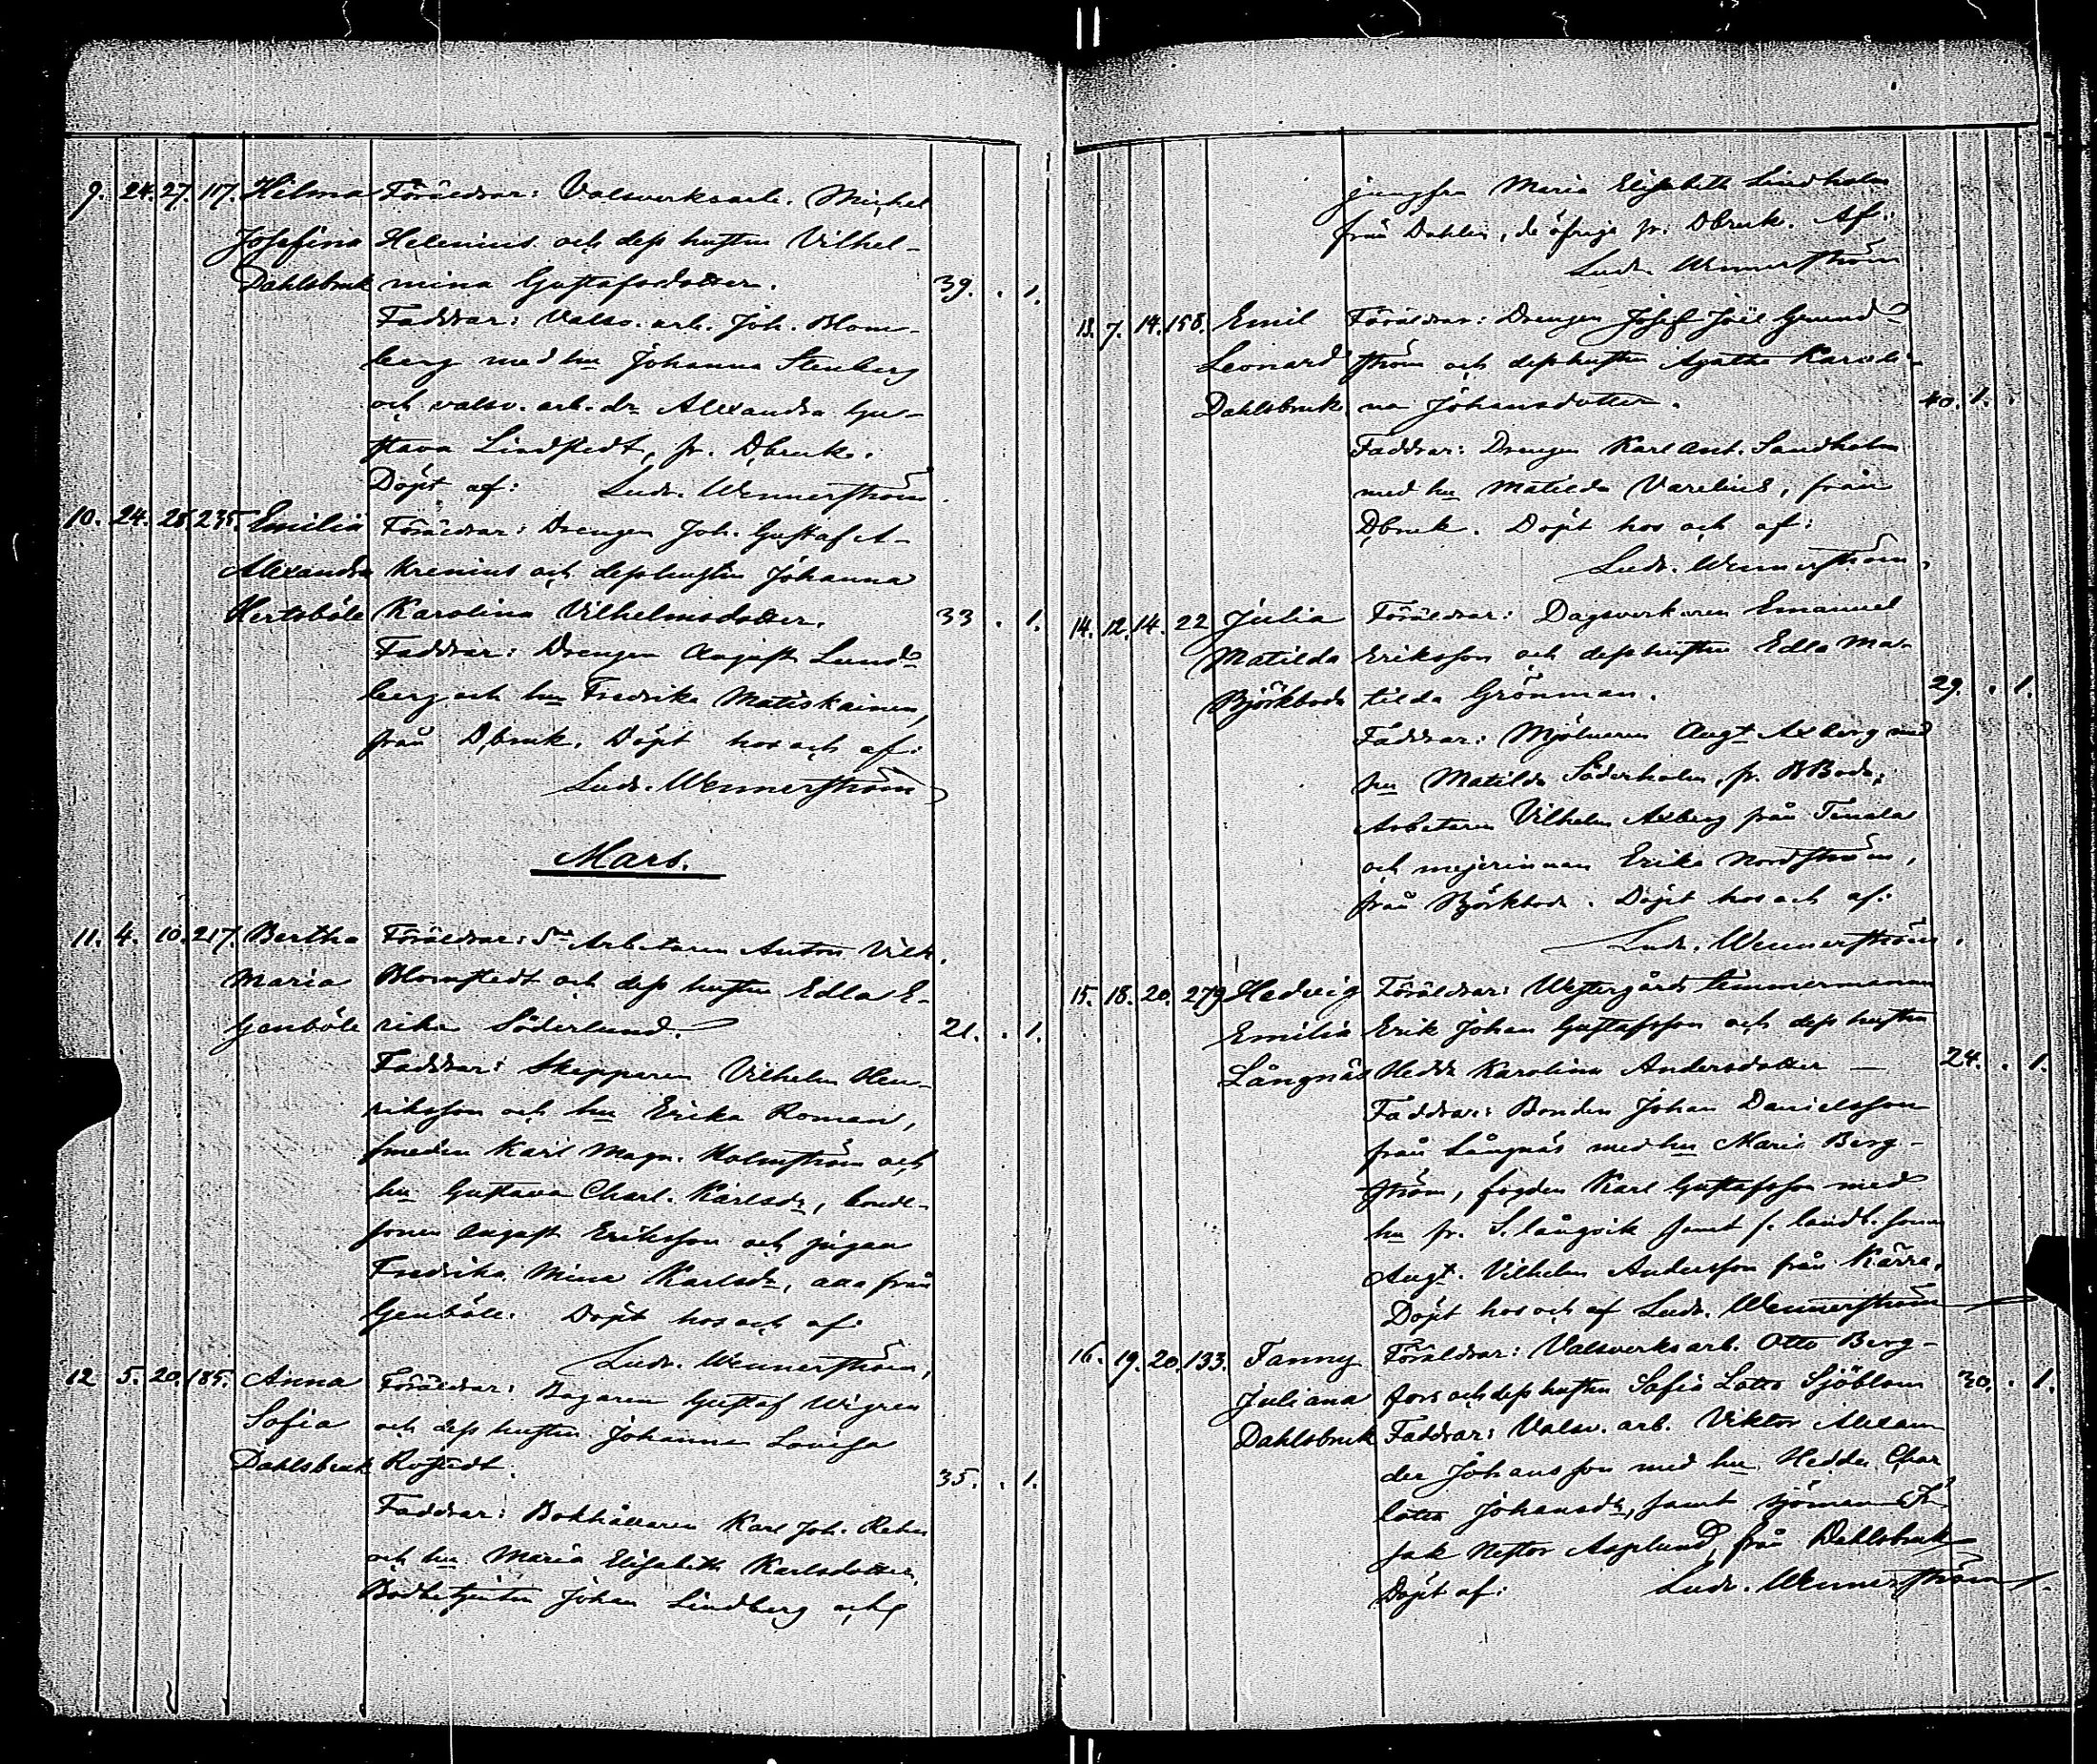 9. 24. 27. 117. Hilma Föräldrar: Valsverksarb. Michel
Josefina Helenius och dess hustru Vilhel-
Dahlsbruk mina Gustafsdotter. 39. . 1.
Faddrar: Valsv. arb. Joh. Blom-
berg med hu Johanna Stenberg
och valsv. arb. dr Alexandra Gu-
stava Lindstedt, fr. Dbruk.
Döpt af: Ludv. Wennerström
10. 24. 28. 235. Emilia Föräldrar: Drengen Joh. Gustaf A-
Alexandra krenius och dess hustru Johanna
Hertsböle Karolina Vilhelmsdotter. 33 . 1.
Faddrar: Drengen August Lund-
berg och hu Fredrika Matiskainen,
från Dbruk. Döpt hos och af:
Ludv. Wennerström
Mars.
11. 4. 10. 217. Bertha Föräldrar: Arbetaren Anton Vilh.
Maria Blomstedt och dess hustru Edla E-
Genböle rika Söderlund. 21. . 1.
Faddrar: Skepparen Vilhelm Hen-
riksson och hu Erika Roman,
smeden Karl Magn. Holmström och
hu Gustava Charl. Karlsdr, bonde-
sonen August Eriksson och pigan
Fredrika Mina Karlsdr, alla från
Genböle. Döpt hos och af:
Ludv. Wennerström,
12 5. 20. 185. Anna Föräldrar: Bagaren Gustaf Wigren
Sofia och dess hustru Johanna Lovisa
Dahlsbruk Rostedt. 35. . 1.
Faddrar: Bokhållaren Karl Joh. Rehn
och hu Maria Elisabeth Karlsdotter,
Bodbetjenten Johan Lindberg och
jungfru Maria Elisabeth Lindholm
från Dahlen, de öfrige fr. Dbruk. Af:
Ludv. Wennerström
13. 7. 14. 158. Emil Föräldrar: Drengen Josef Joël Grund-
Leonard ström och dess hustru Agatha Karoli-
Dahlsbruk. na Johansdotter. 40. 1. .
Faddrar: Drengen Karl Ant. Sandholm
med hu Matilda Varelius, från
Dbruk. Döpt hos och af:
Ludv. Wennerström,
14. 12. 14. 22 Julia Föräldrar: Dagsverkaren Emanuel
Matilda Eriksson och dess hustru Edla Ma-
Björkboda tilda Grönman. 29. . 1.
Faddrar: Mjölnaren Augt Axberg med
hu Matilda Söderholm, fr. BBoda;
Arbetaren Vilhelm Axberg från Tenala
och mejerinnan Erika Nordström,
från Björkboda. Döpt hos och af:
Ludv. Wennerström.
15. 18. 20. 279 Hedvig Föräldrar: Westergårds timmermannen
Emilia Erik Johan Gustafsson och dess hustru
Långnäs Hedda Karolina Andersdotter — 24. . 1.
Faddrar: Bonden Johan Danielsson
från Långnäs med hu Maria Berg-
ström, fogden Karl Gustafsson med
hu fr. S. långvik samt f. landb. sonen
Augt. Vilhelm Andersson från Kärra.
Döpt hos och af Ludv. Wennerström
16. 19. 20. 133. Fanny Föräldrar: Valsverksarb. Otto Berg-
Juliana fors och dess hustru Sofia Lotta Sjöblom 30. . 1.
Dahlsbruk Faddrar: Valsv. arb. Viktor Alexan
der Johansson med hu Hedda Char
lotta Johansdr, samt sjöman
Nestor Asplund, från Dahlsbruk
Döpt af: Ludv. Wennerström.